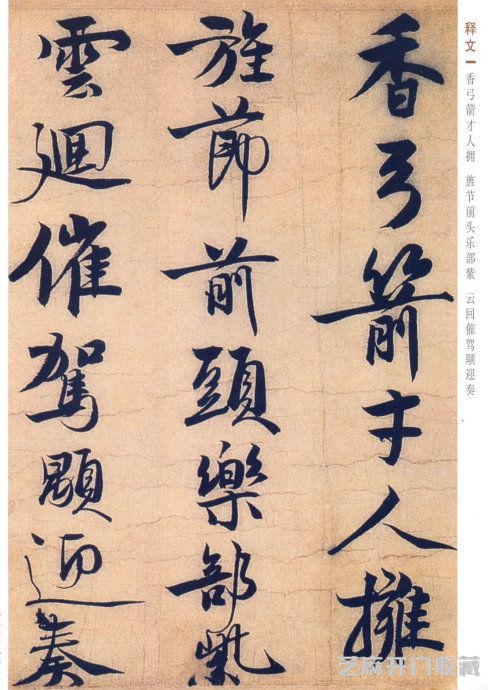 释文
香弓箭才人拥 旌节前头乐部紫 云回催驾顾迎奏
香弓箭才人擁
旌節前頭樂部紫
雲迴催駕顧迎奏
艺麻开门收藏